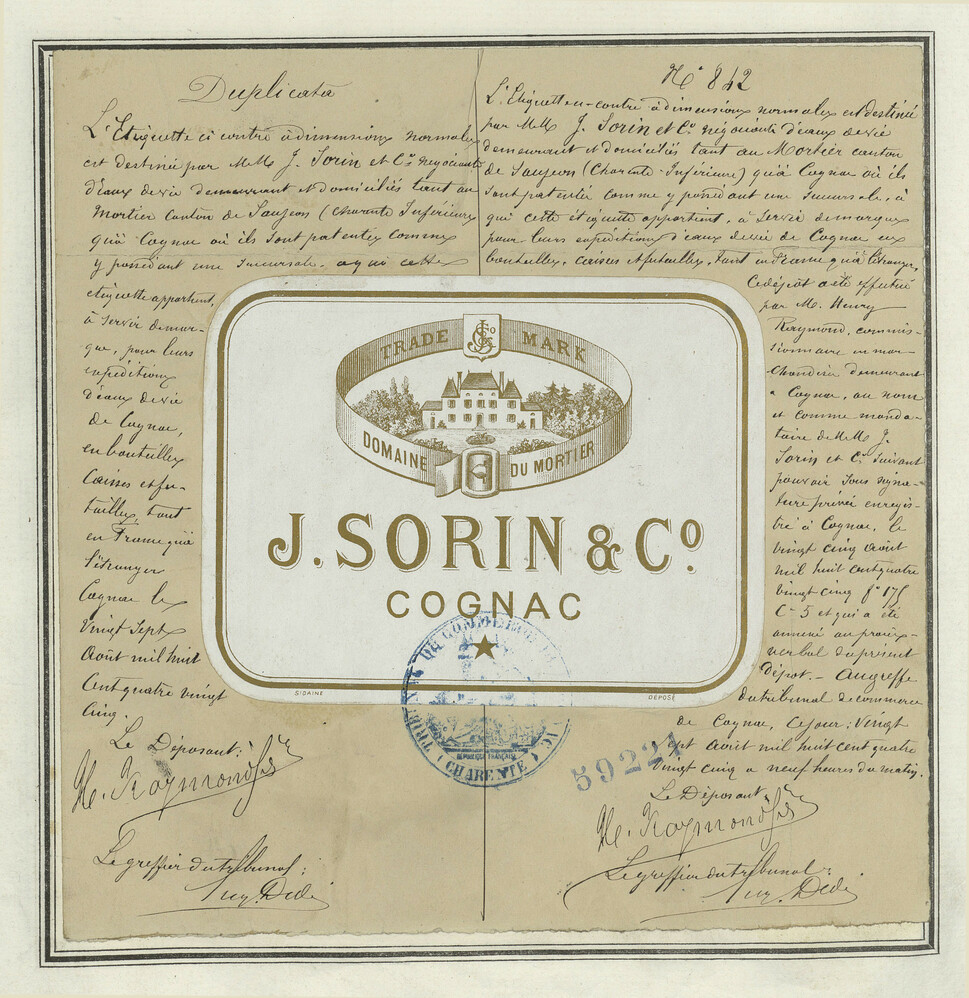 Duplicata
L'Etiquette ci contre à dimensions normales
est destinée par MMs J. Sorin et Co négociants
d'eaux de vie demeurant et domiciliés tant au
Mortier canton de Saujeon (Charente Inférieure)
qu'à Cognac où ils sont patentés comme
y possédant une succursale, à qui cette
etiquette appartient,
à servir de mar-
que, pour leurs
expéditions
d'eaux de vie
de Cognac,
en bouteilles
Caisses et fu-
tailles, tant
en France qu'à
l'étranger
Cognac le
Vingt sept
Août mil huit
Cent quatre vingt
Cinq.
Le Déposant:
H. Raymond fils
Le greffier du tribunal:
No 842
L'Etiquette ci-contre à dimensions normales est destinée
par MMs J. Sorin et Co négociants d'eaux de vie
demeurant et domiciliés tant au Mortier canton
de Saujeon (Charente-Inférieure) qu'à Cognac où ils
sont patentés comme y possédant une succursale, à
qui cette étiquette appartient, à servir de marque
pour leurs expéditions d'eaux de vie de Cognac en
bouteilles, caisses et futailles, tant en France qu'à l'étranger,
Ce dépôt a été effectué
par M. Henry
Raymond, commis-
sionnaire en mar-
chandise demeurant
à Cognac, au nom
et comme manda-
taire de MMs J.
Sorin et Co suivant
pouvoir sous signa-
ture privée enregis-
tré à Cognac, le
vingt cinq août
mil huit cent quatre
vingt cinq fo 175
Ce 5 et qui a été
annexé au procès-
verbal du présent
dépôt. - Au greffe
du tribunal de commerce
de Cognac, ce jour: vingt
sept août mil huit cent quatre
vingt cinq à neuf heures du matin.
Le Déposant
H. Raymond fils
Le greffier du tribunal:
TRADE MARK
J S & Co
DOMAINE DU MORTIER
J. SORIN & Co.
COGNAC
SIDAINE
DÉPOSÉ
TRIBUNAL DE COMMERCE
RÉPUBLIQUE FRANÇAISE
(CHARENTE)
59221